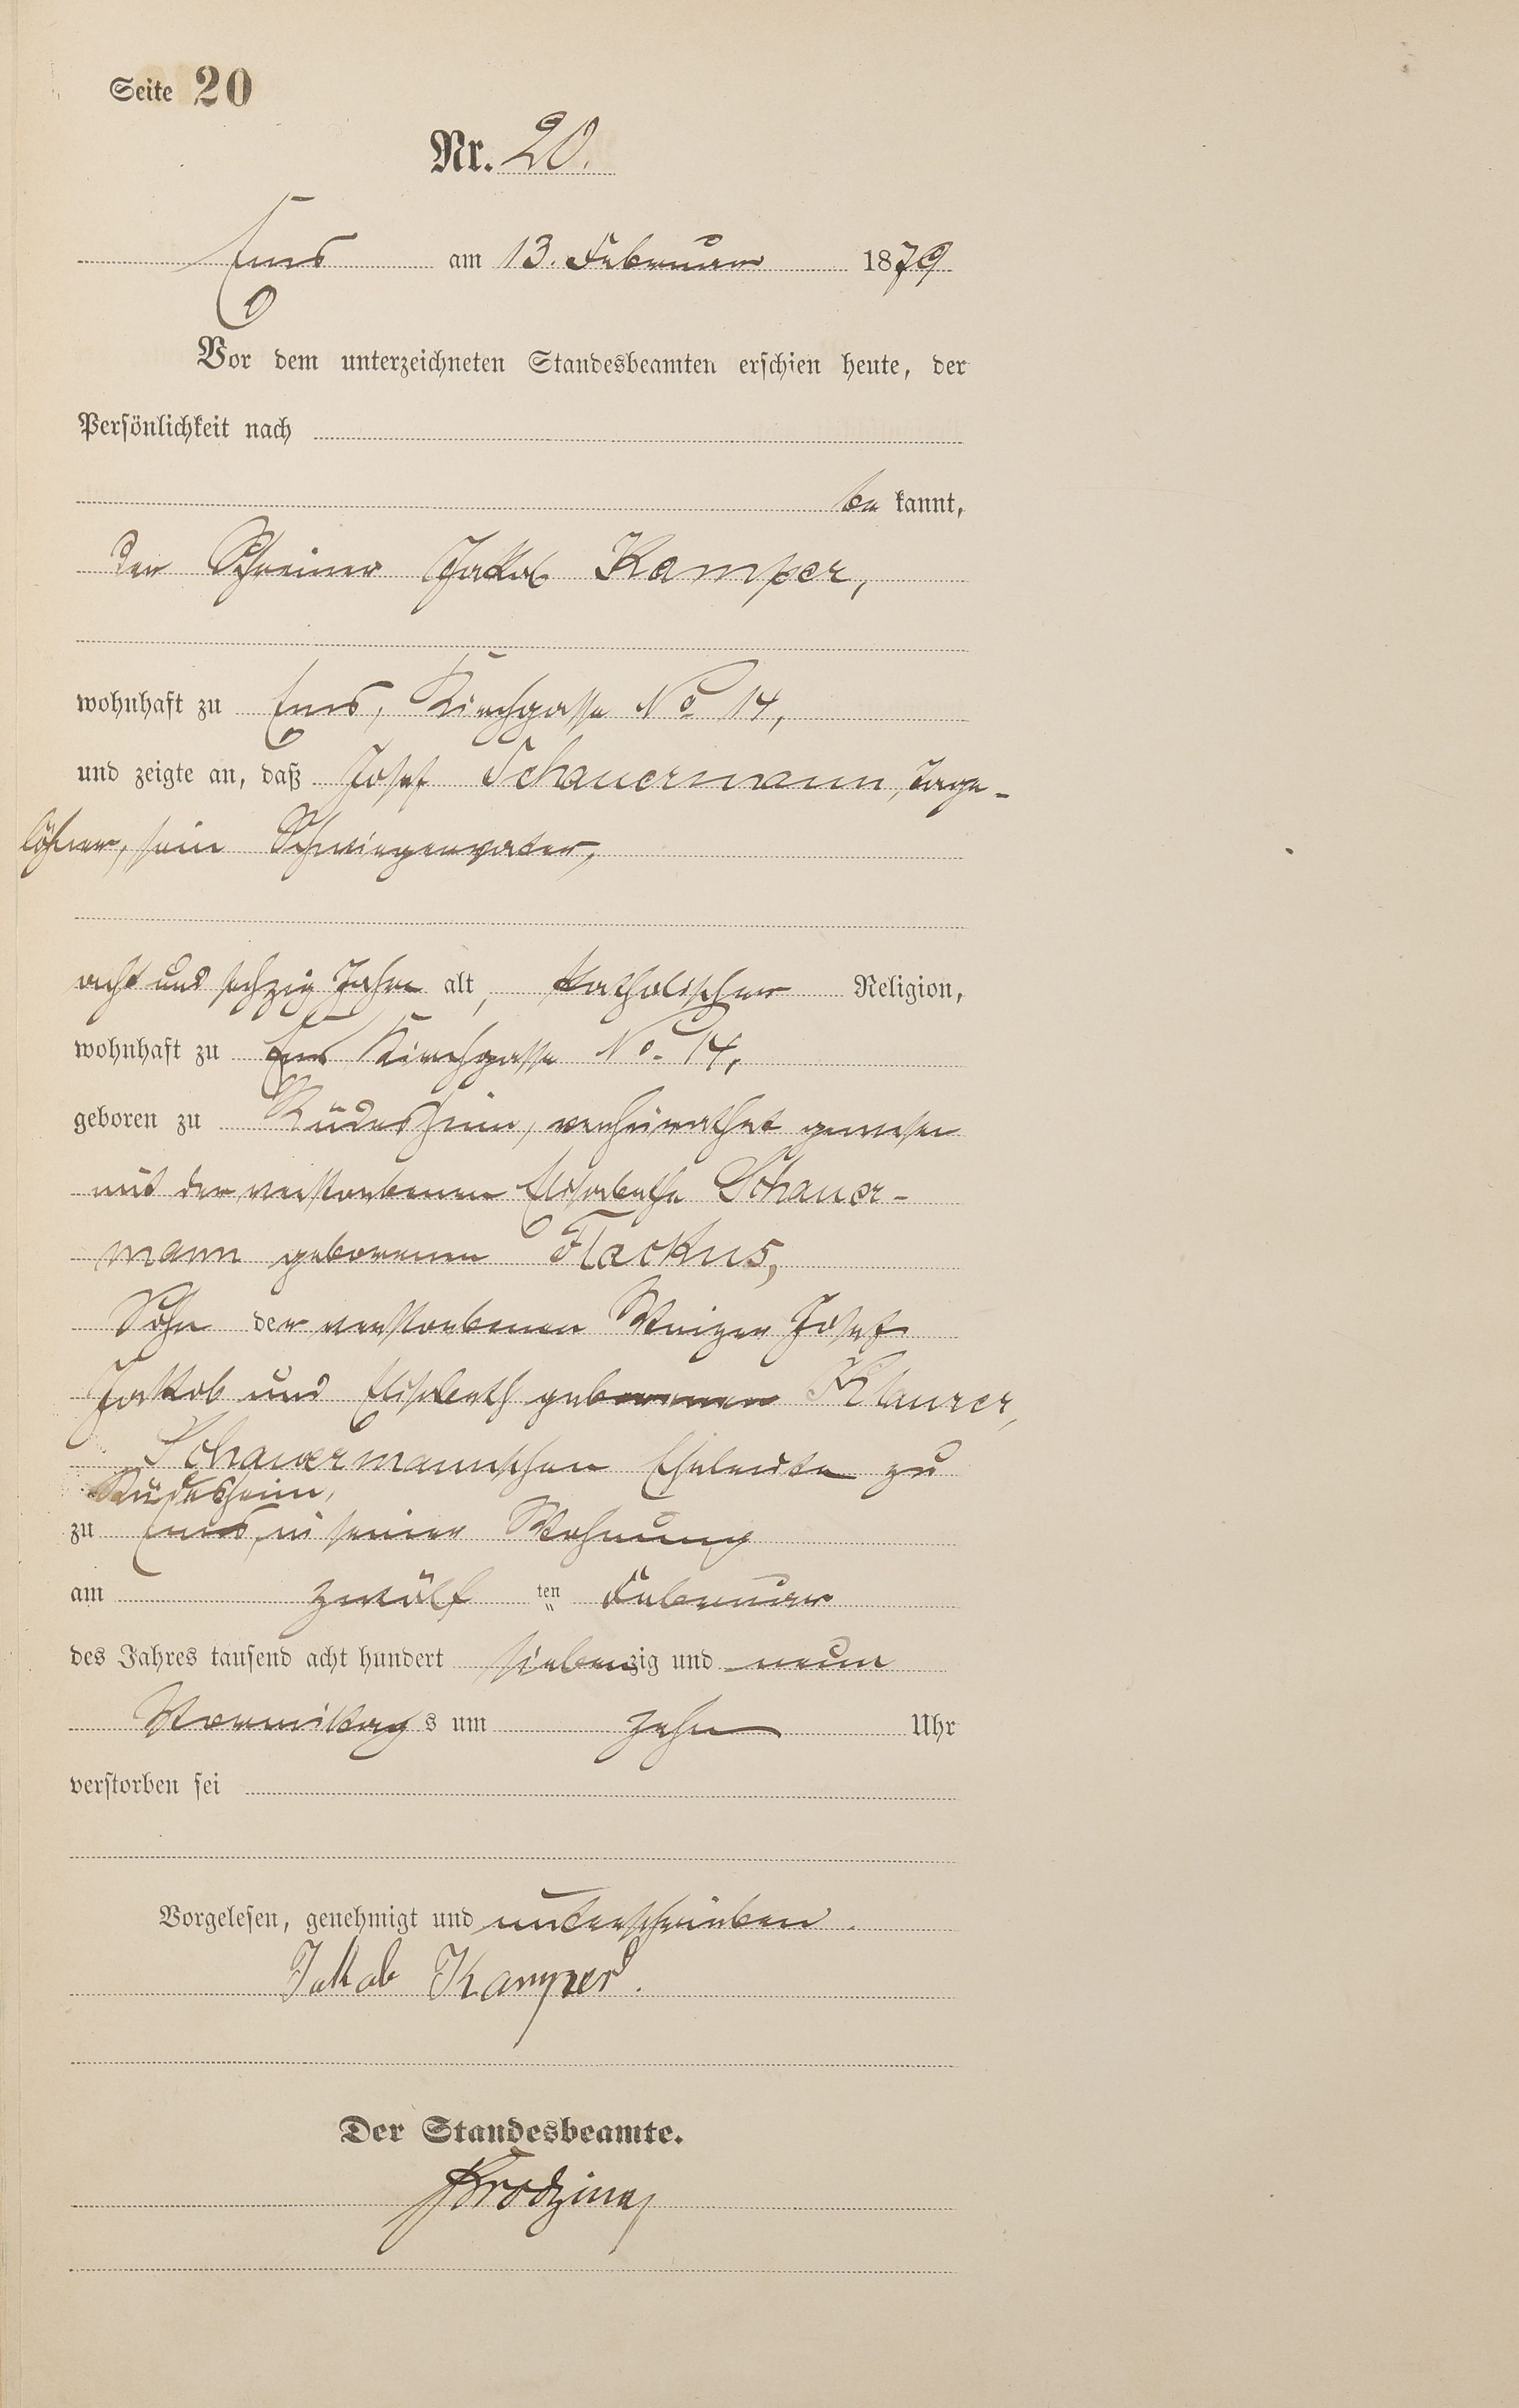 Seite 20
Nr. 20.
Ems am 13. Februar 1879
Vor dem unterzeichneten Standesbeamten erschien heute, der
Persönlichkeit nach
be kannt,
der Schreiner Jakob Kamper,
wohnhaft zu Ems, Kirchgasse No 14,
und zeigte an, daß Josef Schauermann, Tage-
löhner, sein Schwiegervater,
acht und sechzig Jahre alt, katholischer Religion,
wohnhaft zu Ems Kirchgasse No. 14,
geboren zu Rüdesheim, verheirathet gewesen
mit der verstorbenen Elisabethe Schauer-
mann geborenen Flackus,
Sohn der verstorbenen Winzer Josef
Jakob und Elisabeth geborenen Klaurer,
Schauermannschen Eheleute zu
Rüdesheim,
zu Ems, in seiner Wohnung
am zwölf ten Februar
des Jahres tausend acht hundert siebenzig und neun
Vormittag s um zehn Uhr
verstorben sei
Vorgelesen, genehmigt und unterschrieben.
Jakob Kamper.
Der Standesbeamte.